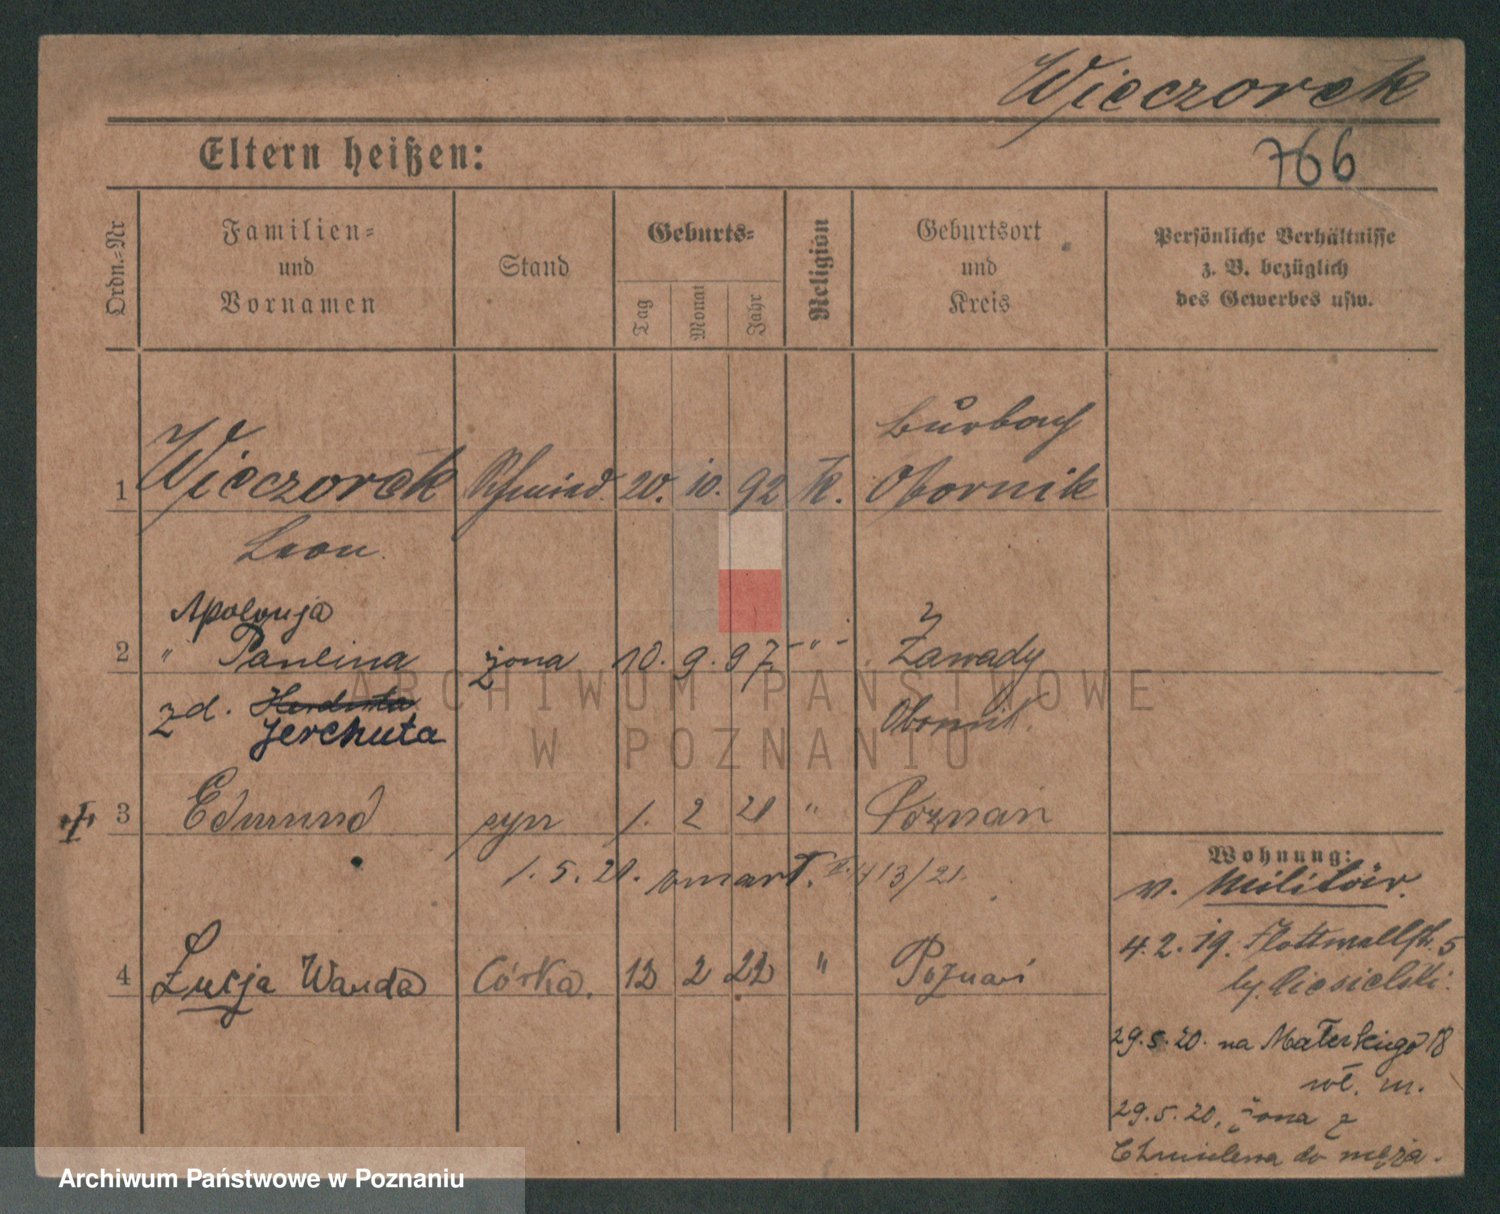 Wieczorek
Eltern heißen:
766
Ordn.-Nr
Familien-
und
Vornamen
Stand
Geburts-
Tag
Monat
Jahr
Religion
Geburtsort
und
Kreis
Persönliche Verhältnisse
z. B. bezüglich
des Gewerbes usw.
1 Wieczorek Schmied. 20. 10. 92 K. Obornik
Leon
Apolonja
2 " Paulina żona 10. 9. 97 - " - Zawady
zd.
Jerchuta Obornik.
3 Edmund syn 1. 2 21 " Poznań
1. 5. 21. zmarł. 413/21.
Wohnung:
v. Militär.
4. 2. 19. Flottwellstr. 5
by. Ciesielski.
4 Łucja Wanda Córka. 12 2 22 " Poznań
29. 5. 20. na Małeckiego 18
wł. m.
29. 5. 20, żona z
do męża.
ARCHIWUM PAŃSTWOWE
W POZNANIU
Archiwum Państwowe w Poznaniu